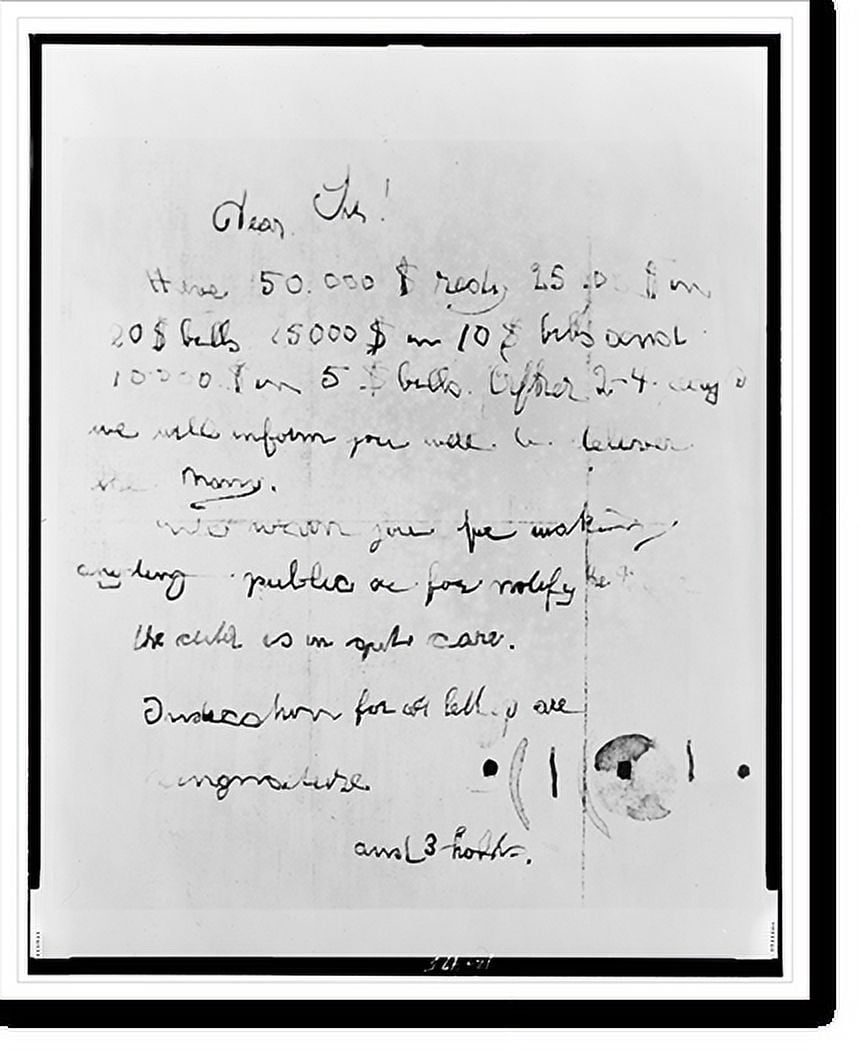 Dear Sir!
Have 50.000 $ redy 25 $ in
20 $ bills 15000 $ in 10 $ bills and
10000 $ in 5 $ bills. After 2-4 days
we will inform you to deliver
the Mony.
We warn you for making
anyding public or for notify the
the child is in gut care.
Indication for all are
singnature
and 3 holds.